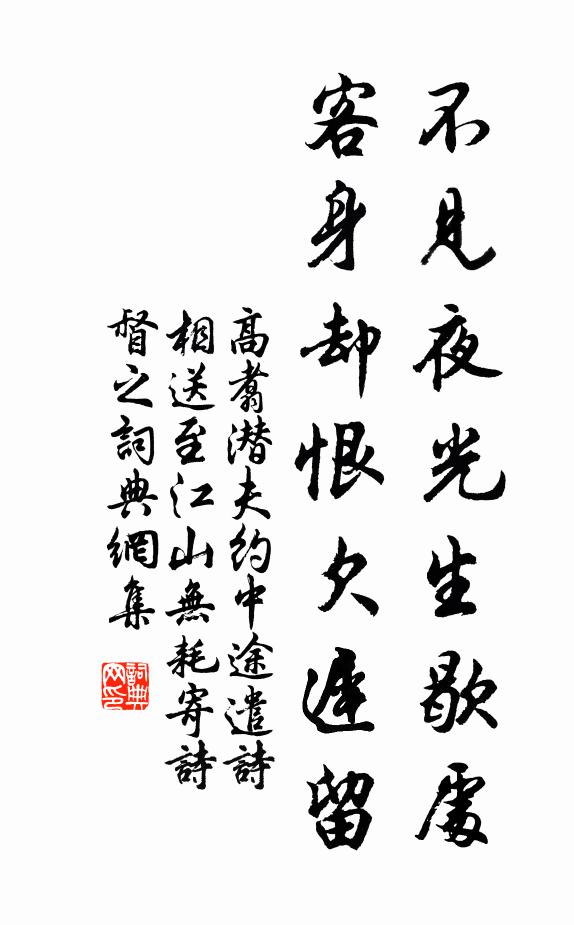 不見夜光生歇處
客身却恨欠遲留
高翥潜夫約中途遣詩
相送至江山無耗寄詩
督之詞典網集
詞典
网印